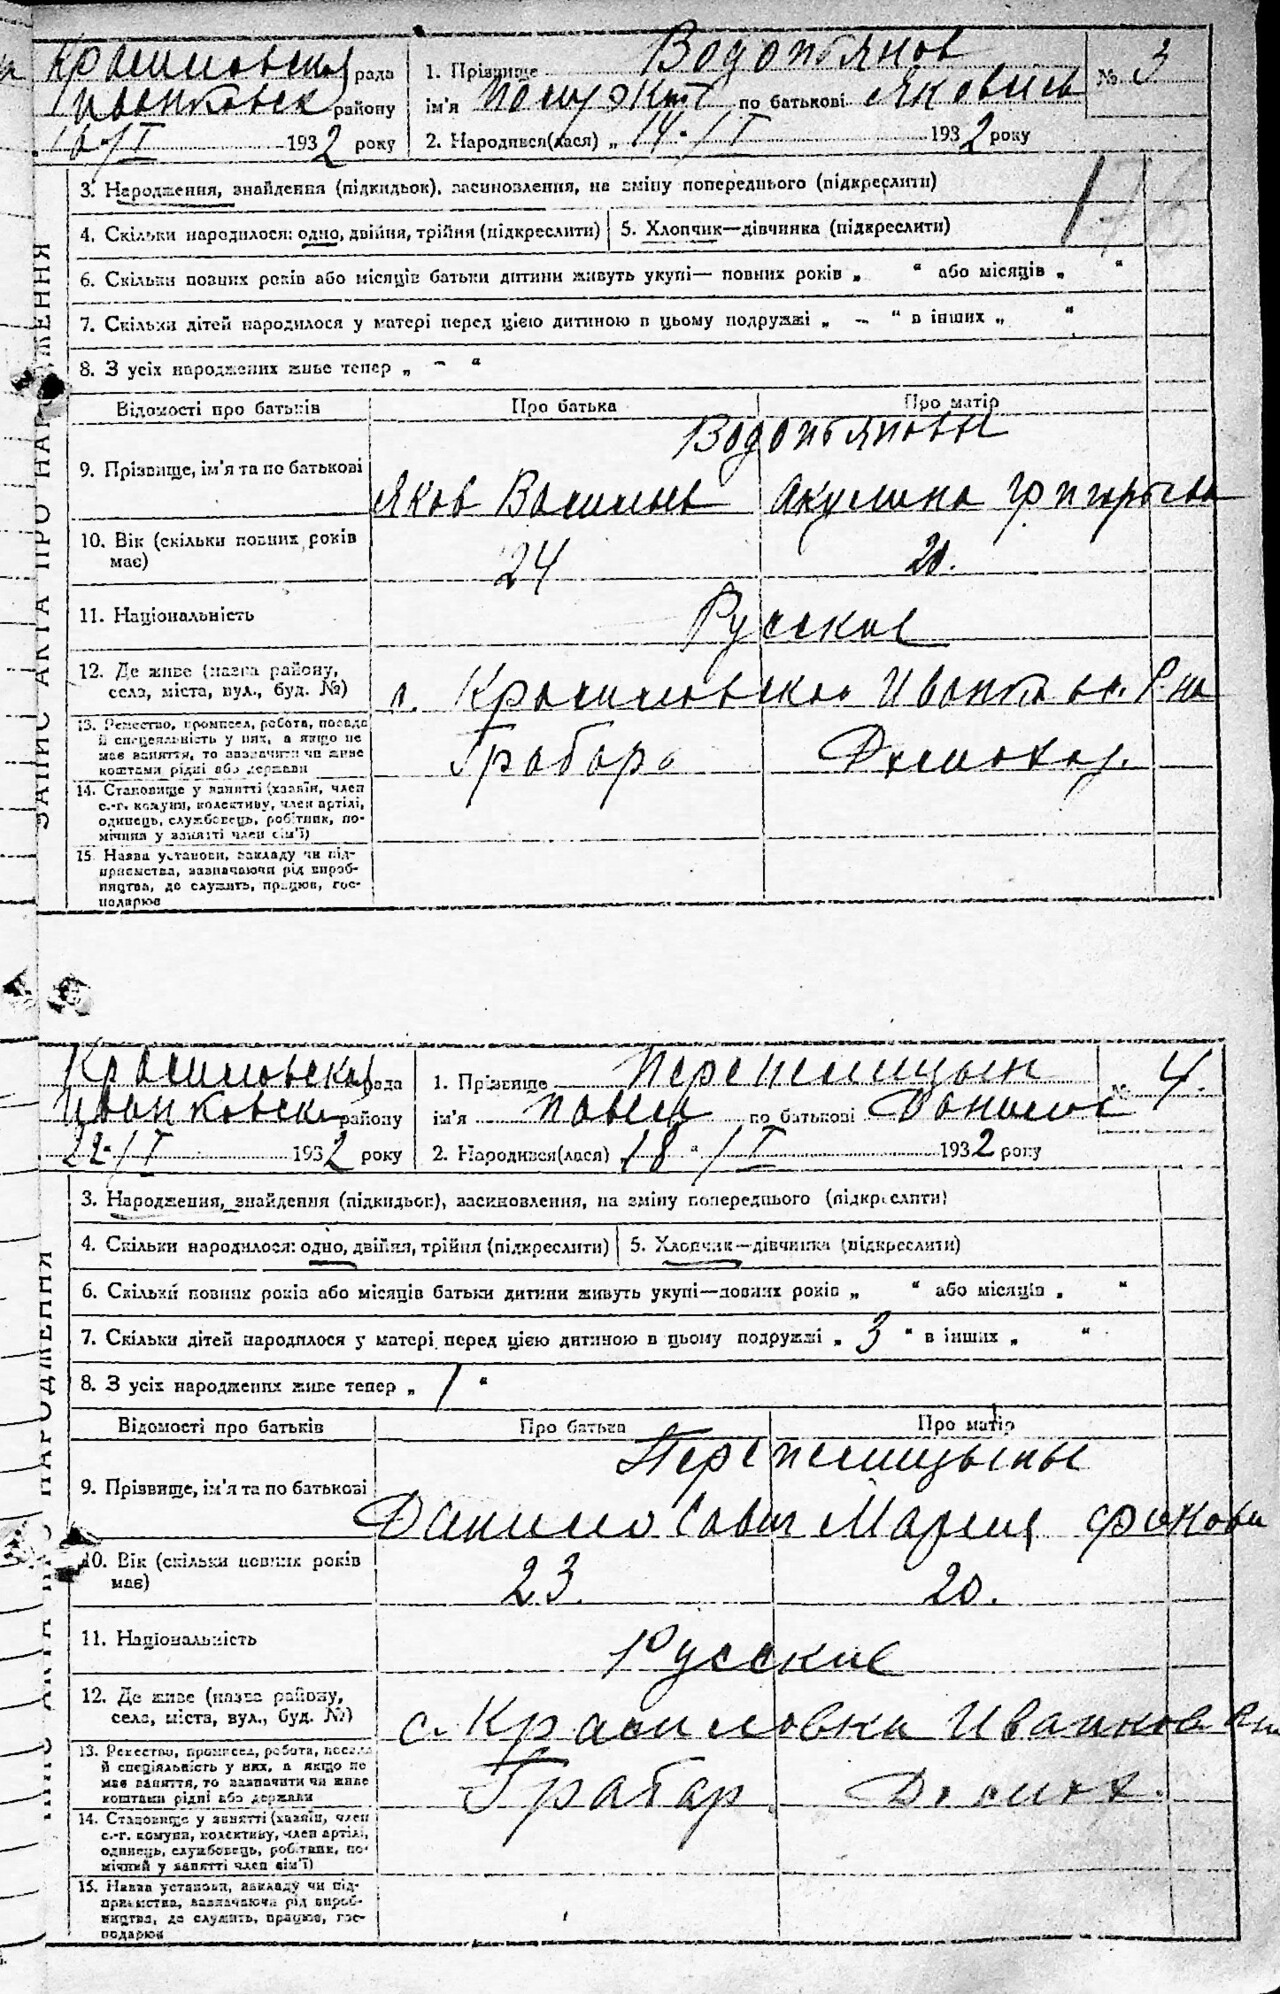 Красиловская рада 1. Прізвище Водопьянов № 3
Иванковск району ім'я по батькові Яковлев
16/I 1932 року 2. Народився(лася) „ 14/I 1932 року
176
3. Народження, знайдення (підкидьок), засиновлення, на зміну попереднього (підкреслити)
4. Скільки народилося: одно, двійня, трійня (підкреслити) 5. Хлопчик—дівчинка (підкреслити)
6. Скільки повних років або місяців батьки дитини живуть укупі— повних років „ “ або місяців „ “
7. Скільки дітей народилося у матері перед цією дитиною в цьому подружжі „ – “ в інших „ “
8. З усіх народжених живе тепер „ – “
Відомості про батьків Про батька Про матір
Водопьяновы
9. Прізвище, ім'я та по батькові
Яков Васильев Акулина Григорьева
10. Вік (скільки повних років
має) 24 20.
11. Національність Русские
12. Де живе (назва району,
села, міста, вул., буд. №) с. Р-на
13. Ремество, промисел, робота, посада
й спеціяльність у них, а якщо не
має заняття, то зазначити чи живе Грабар Домохоз.
коштами рідні або держави
14. Становище у занятті (хазяїн, член
с.-г. комуни, колективу, член артілі,
одинець, службовець, робітник, по-
мічник у занятті член сім'ї)
15. Назва установи, закладу чи під-
приємства, зазначаючи рід вироб-
ництва, де служить, працює, гос-
подарює
ЗАПИС АКТА ПРО НАРОДЖЕННЯ
Красиловская рада 1. Прізвище Перепелицын № 4.
Иванковск району ім'я Павел по батькові Данилов
22/I 1932 року 2. Народився(лася) 18/I 1932 року
3. Народження, знайдення (підкидьок), засиновлення, на зміну попереднього (підкреслити)
4. Скільки народилося: одно, двійня, трійня (підкреслити) 5. Хлопчик—дівчинка (підкреслити)
6. Скільки повних років або місяців батьки дитини живуть укупі—повних років „ “ або місяців „ “
7. Скільки дітей народилося у матері перед цією дитиною в цьому подружжі „ 3 “ в інших „ “
8. З усіх народжених живе тепер „ 1 “
Відомості про батьків Про батька Про матір
Перепелицыны
9. Прізвище, ім'я та по батькові
Данило Савич Мария
10. Вік (скільки повних років
має) 23. 20.
11. Національність Русские
12. Де живе (назва району,
села, міста, вул., буд. №) с. Красиловка Иванков.
13. Ремество, промисел, робота, посада
й спеціяльність у них, а якщо не
має заняття, то зазначити чи живе Грабар.
коштами рідні або держави
14. Становище у занятті (хазяїн, член
с.-г. комуни, колективу, член артілі,
одинець, службовець, робітник, по-
мічний у занятті член сім'ї)
15. Назва установи, закладу чи під-
приємства, зазначаючи рід вироб-
ництва, де служить, працює, гос-
подарює
АКТА НАРОДЖЕННЯ